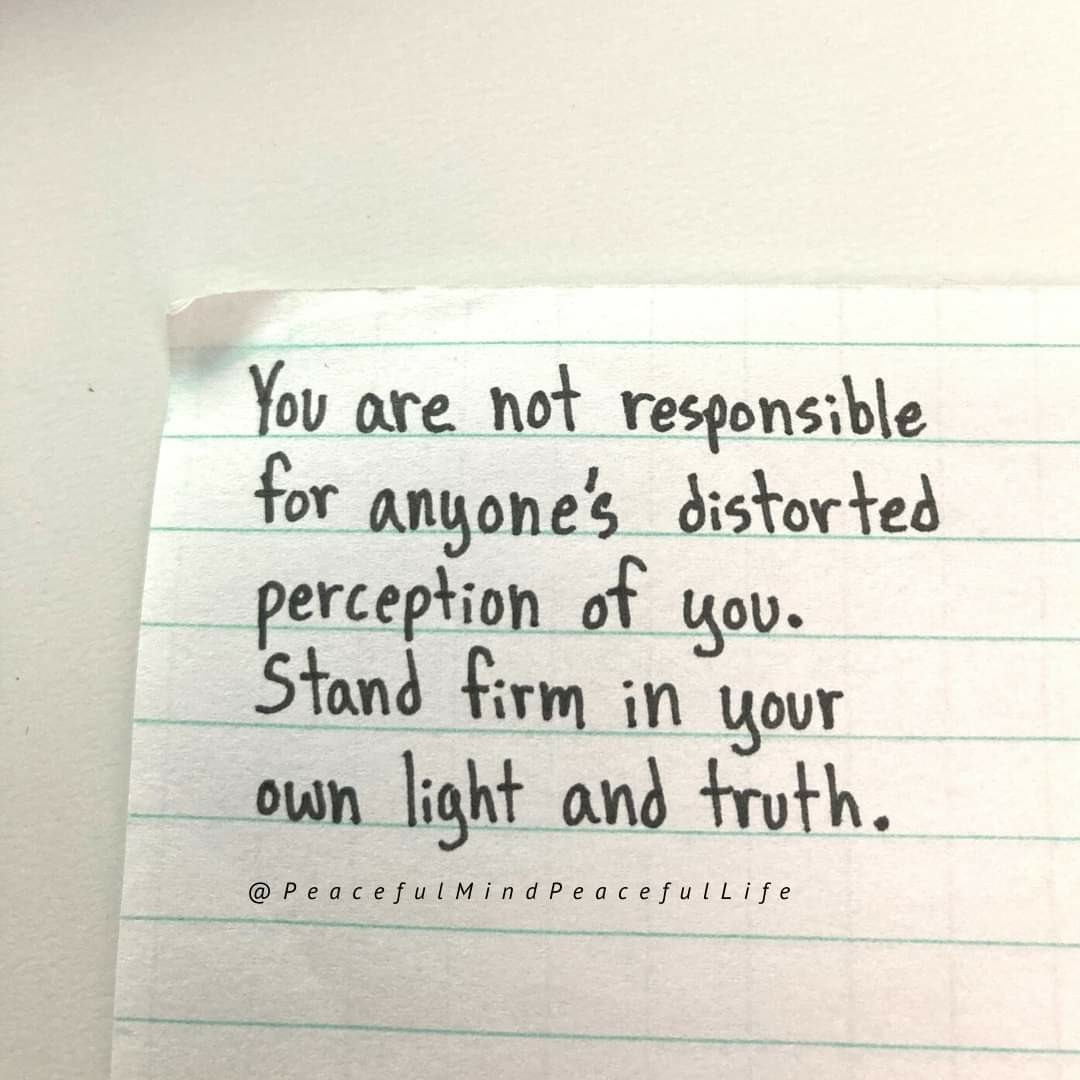 You are not responsible
for anyone's distorted
perception of you.
Stand firm in your
own light and truth.
@PeacefulMindPeacefulLife